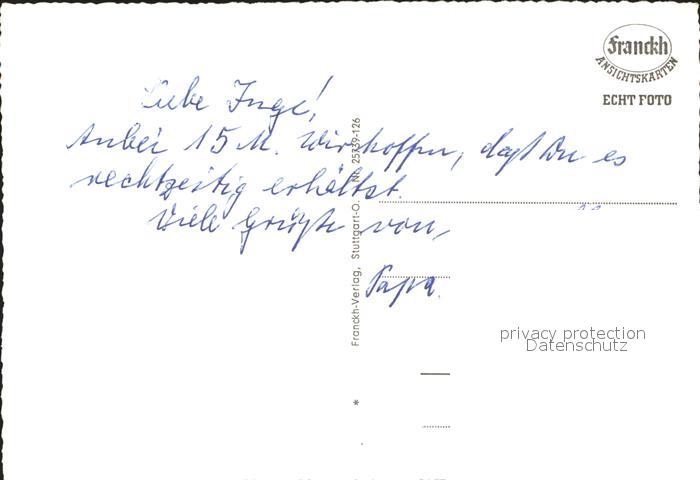 Franckh
ANSICHTSKARTEN
ECHT FOTO
Liebe Inge!
Anbei 15 M. Wir hoffen, daß Du es
rechtzeitig erhältst.
Viele Grüße von
Papa.
Franckh-Verlag, Stuttgart-O. Nr. 25739-126
*
privacy protection
Datenschutz